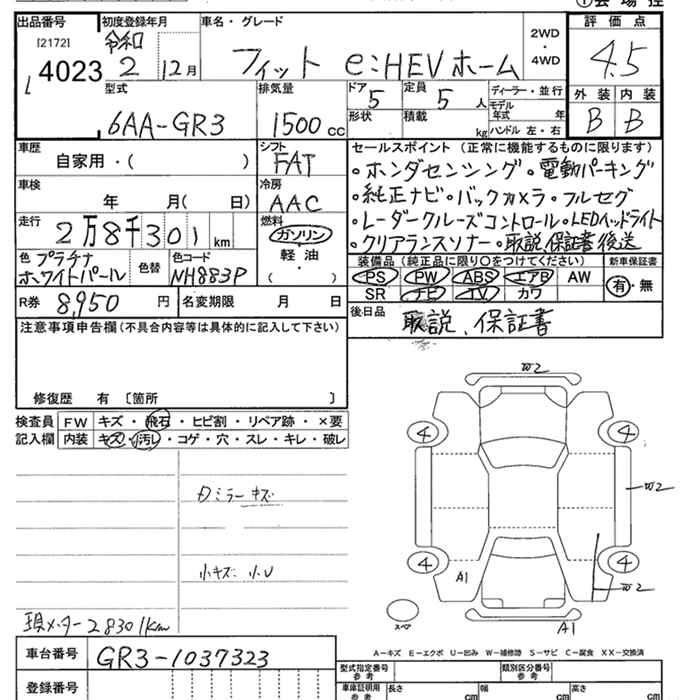 ①会場控
出品番号 初度登録年月 車名・グレード 評価点
[2172]
4023
令和 2 12月
フィット e:HEVホーム
2WD ・ 4WD
4.5
外装 内装
B B
型式 6AA-GR3
排気量 1500 cc
ドア 5 定員 5 人
形状 積載 kg
ディーラー・並行
モデル年式 年
ハンドル 左・右
車歴 自家用・( )
シフト FAT
車検 年 月( 日)
冷房 AAC
走行 2万8千301 km
燃料 ガソリン・軽油・( )
色 プラチナホワイトパール 色替 色コード NH883P
R券 8,950 円 名変期限 月 日
セールスポイント(正常に機能するものに限ります)
・ホンダセンシング・電動パーキング
・純正ナビ・バックカメラ・フルセグ
・レーダークルーズコントロール・LEDヘッドライト
・クリアランスソナー・取説、保証書後送
装備品(純正品に限り○をつけてください) 新車保証書
PS PW ABS エアB AW 有・無
SR ナビ TV カワ
後日品 取説、保証書
注意事項申告欄(不具合内容等は具体的に記入して下さい)
修復歴 有 〔箇所 〕
検査員 FW キズ・飛石・ヒビ割・リペア跡・×要
記入欄 内装 キズ・汚レ・コゲ・穴・スレ・キレ・破レ
ミラーキズ
小キズ、小U
現メーター28301km
W2
4 4
W2
4 4
A1
W2
スペア
A1
A-キズ E-エクボ U-凹み W-補修跡 S-サビ C-腐食 XX-交換済
車台番号 GR3-1037323
登録番号
型式指定番号 参考 類別区分番号 参考
車庫証明用 参考 長さ cm 幅 cm 高さ cm